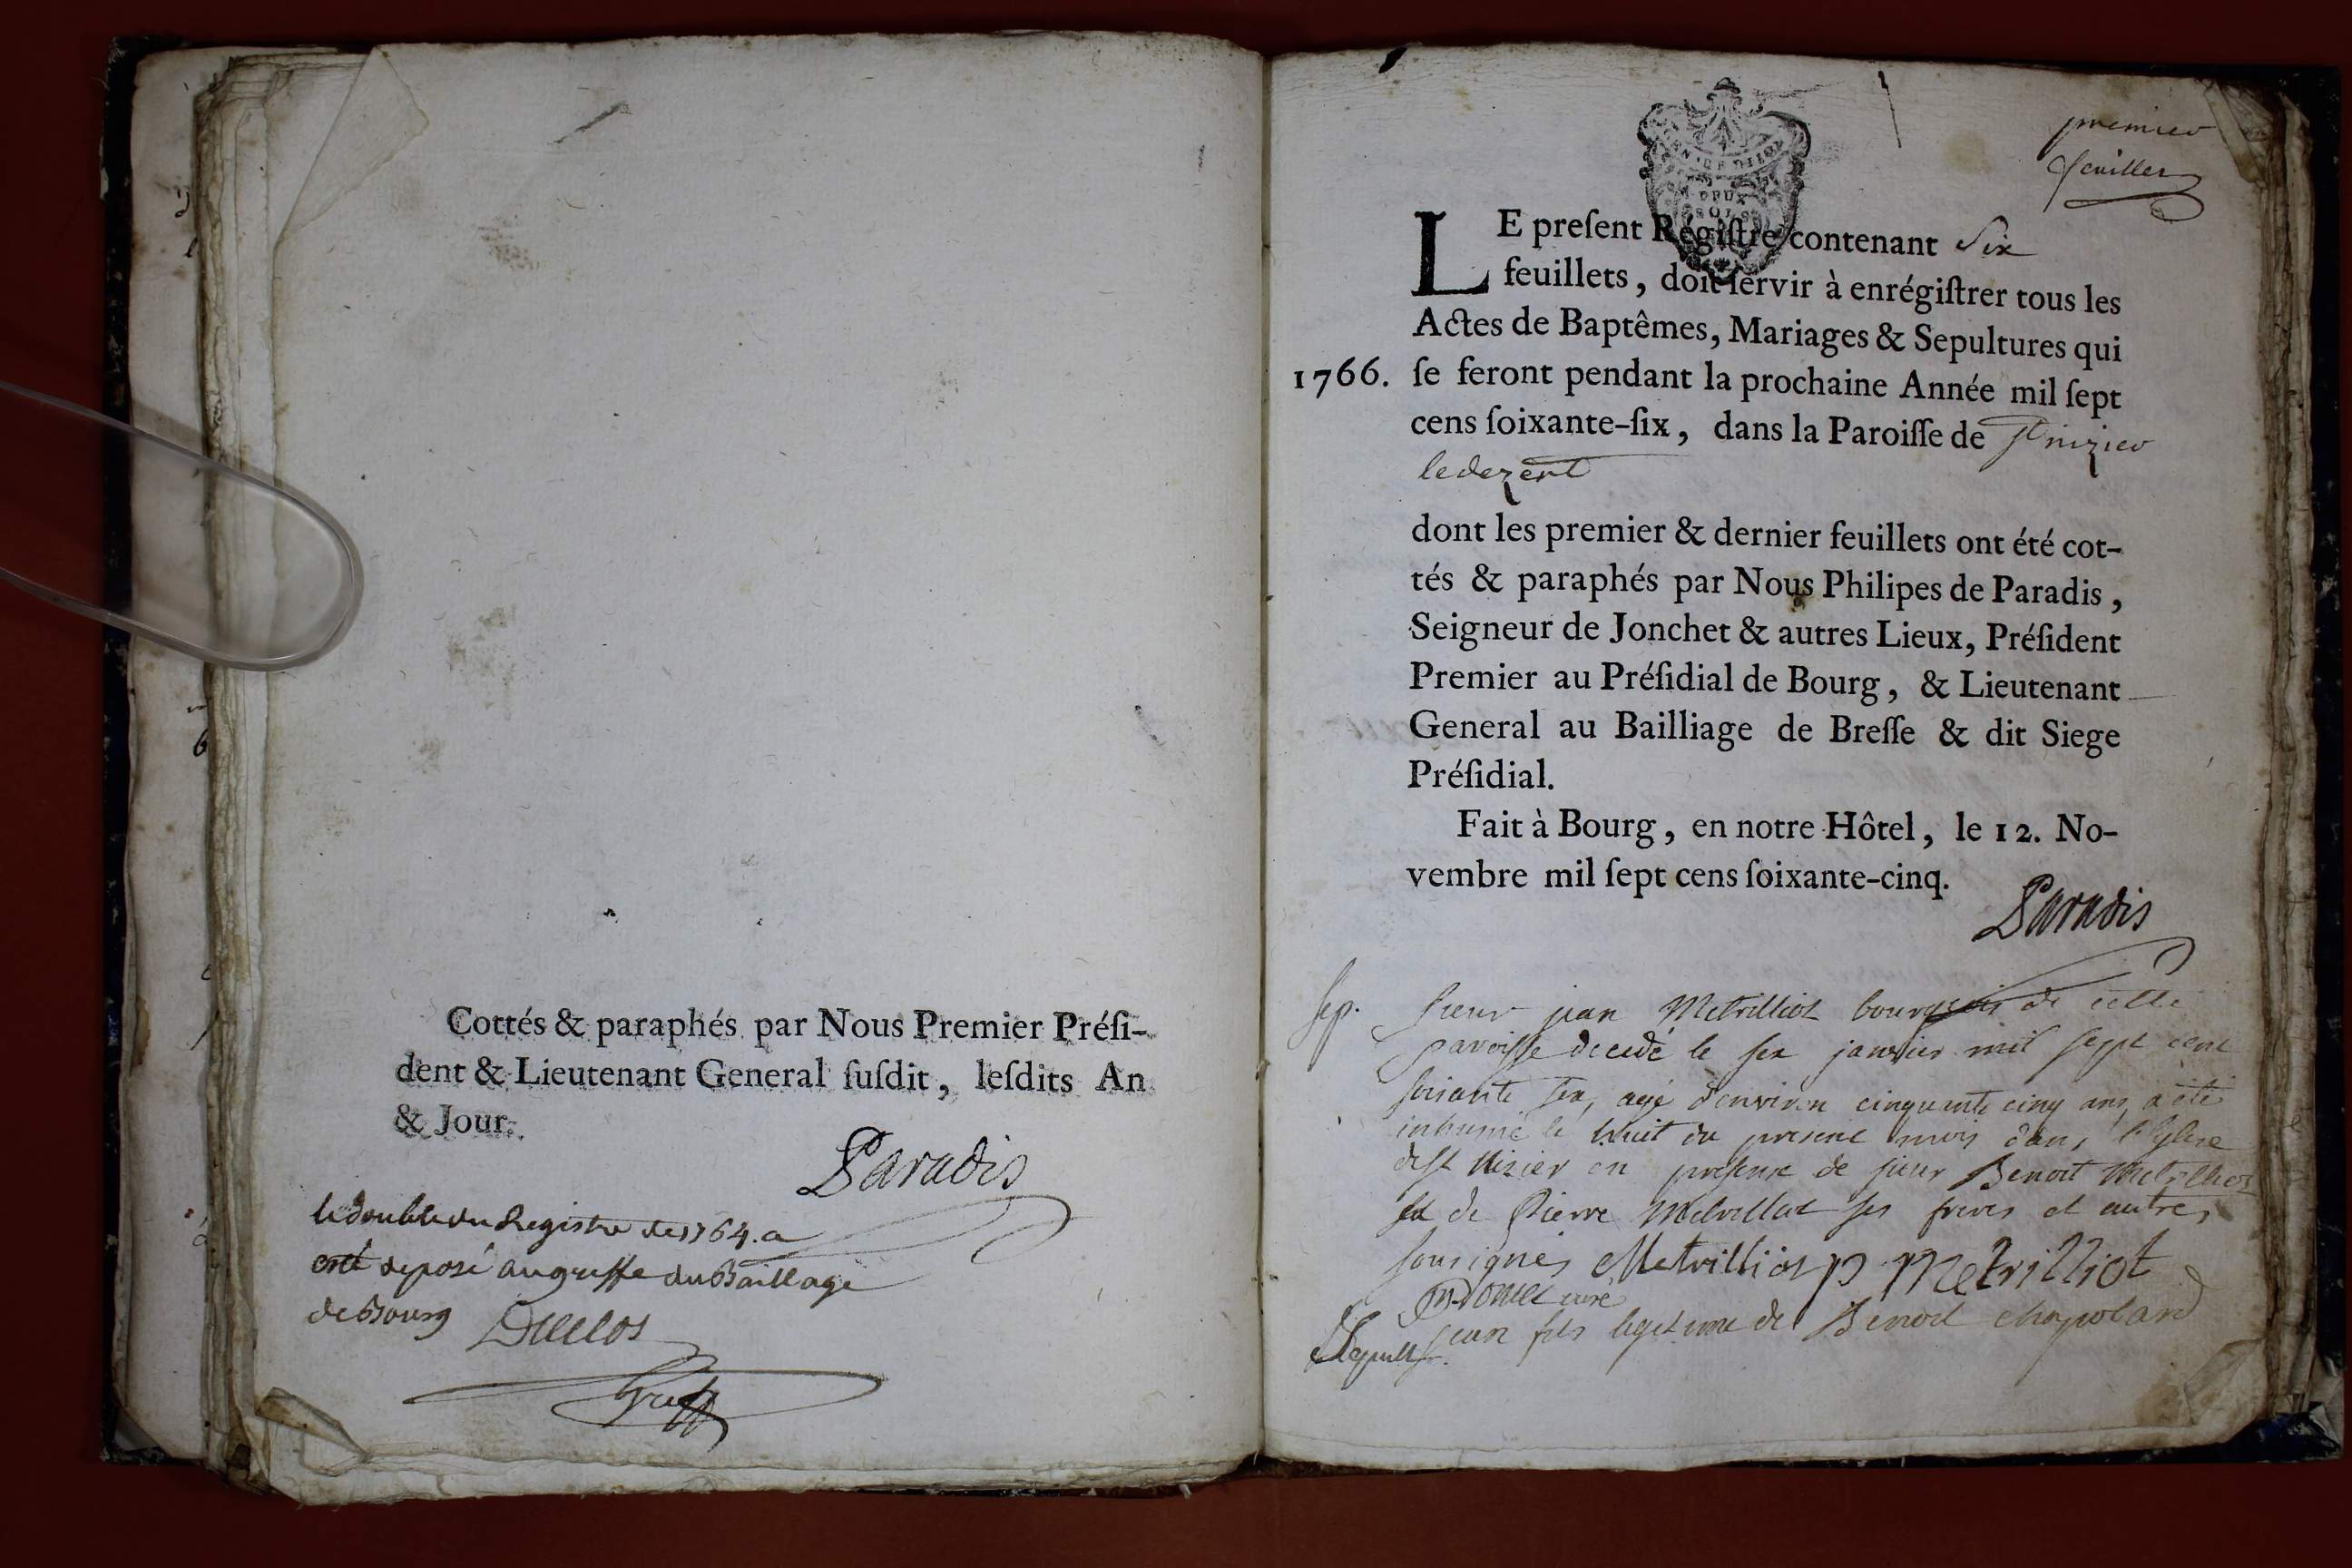 Cottés & paraphés par Nous Premier Préſi-
dent & Lieutenant General ſuſdit, leſdits An
& Jour.
Paradis
le double du Registre de 1764. a
esté deposé au greffe du Baillage
de Bourg Duclos
Greff
premier
feuillet
DEUX
SOLS
LE preſent Régiſtre contenant Six
feuillets, doit ſervir à enrégiſtrer tous les
Actes de Baptêmes, Mariages & Sepultures qui
1766. ſe feront pendant la prochaine Année mil ſept
cens ſoixante-ſix, dans la Paroiſſe de St nizier
ledezert
dont les premier & dernier feuillets ont été cot-
tés & paraphés par Nous Philipes de Paradis,
Seigneur de Jonchet & autres Lieux, Préſident
Premier au Préſidial de Bourg, & Lieutenant
General au Bailliage de Breſſe & dit Siege
Préſidial.
Fait à Bourg, en notre Hôtel, le 12. No-
vembre mil ſept cens ſoixante-cinq.
Paradis
sep. sieur jean Metrilliot bourgeois de cette
paroisse decedé le six janvier mil sept cent
soisante six, agé d'environ cinquante cinq ans, a été
inhumé le huit du present mois dans l'Eglise
de St Nizier en presence de sieur Benoit Metrilliot
et de Pierre Metrilliot ses freres et autres
sousignés Metrilliot p. Metrilliot
curé
Sepult. jean fils legitime de Benoit chapolard